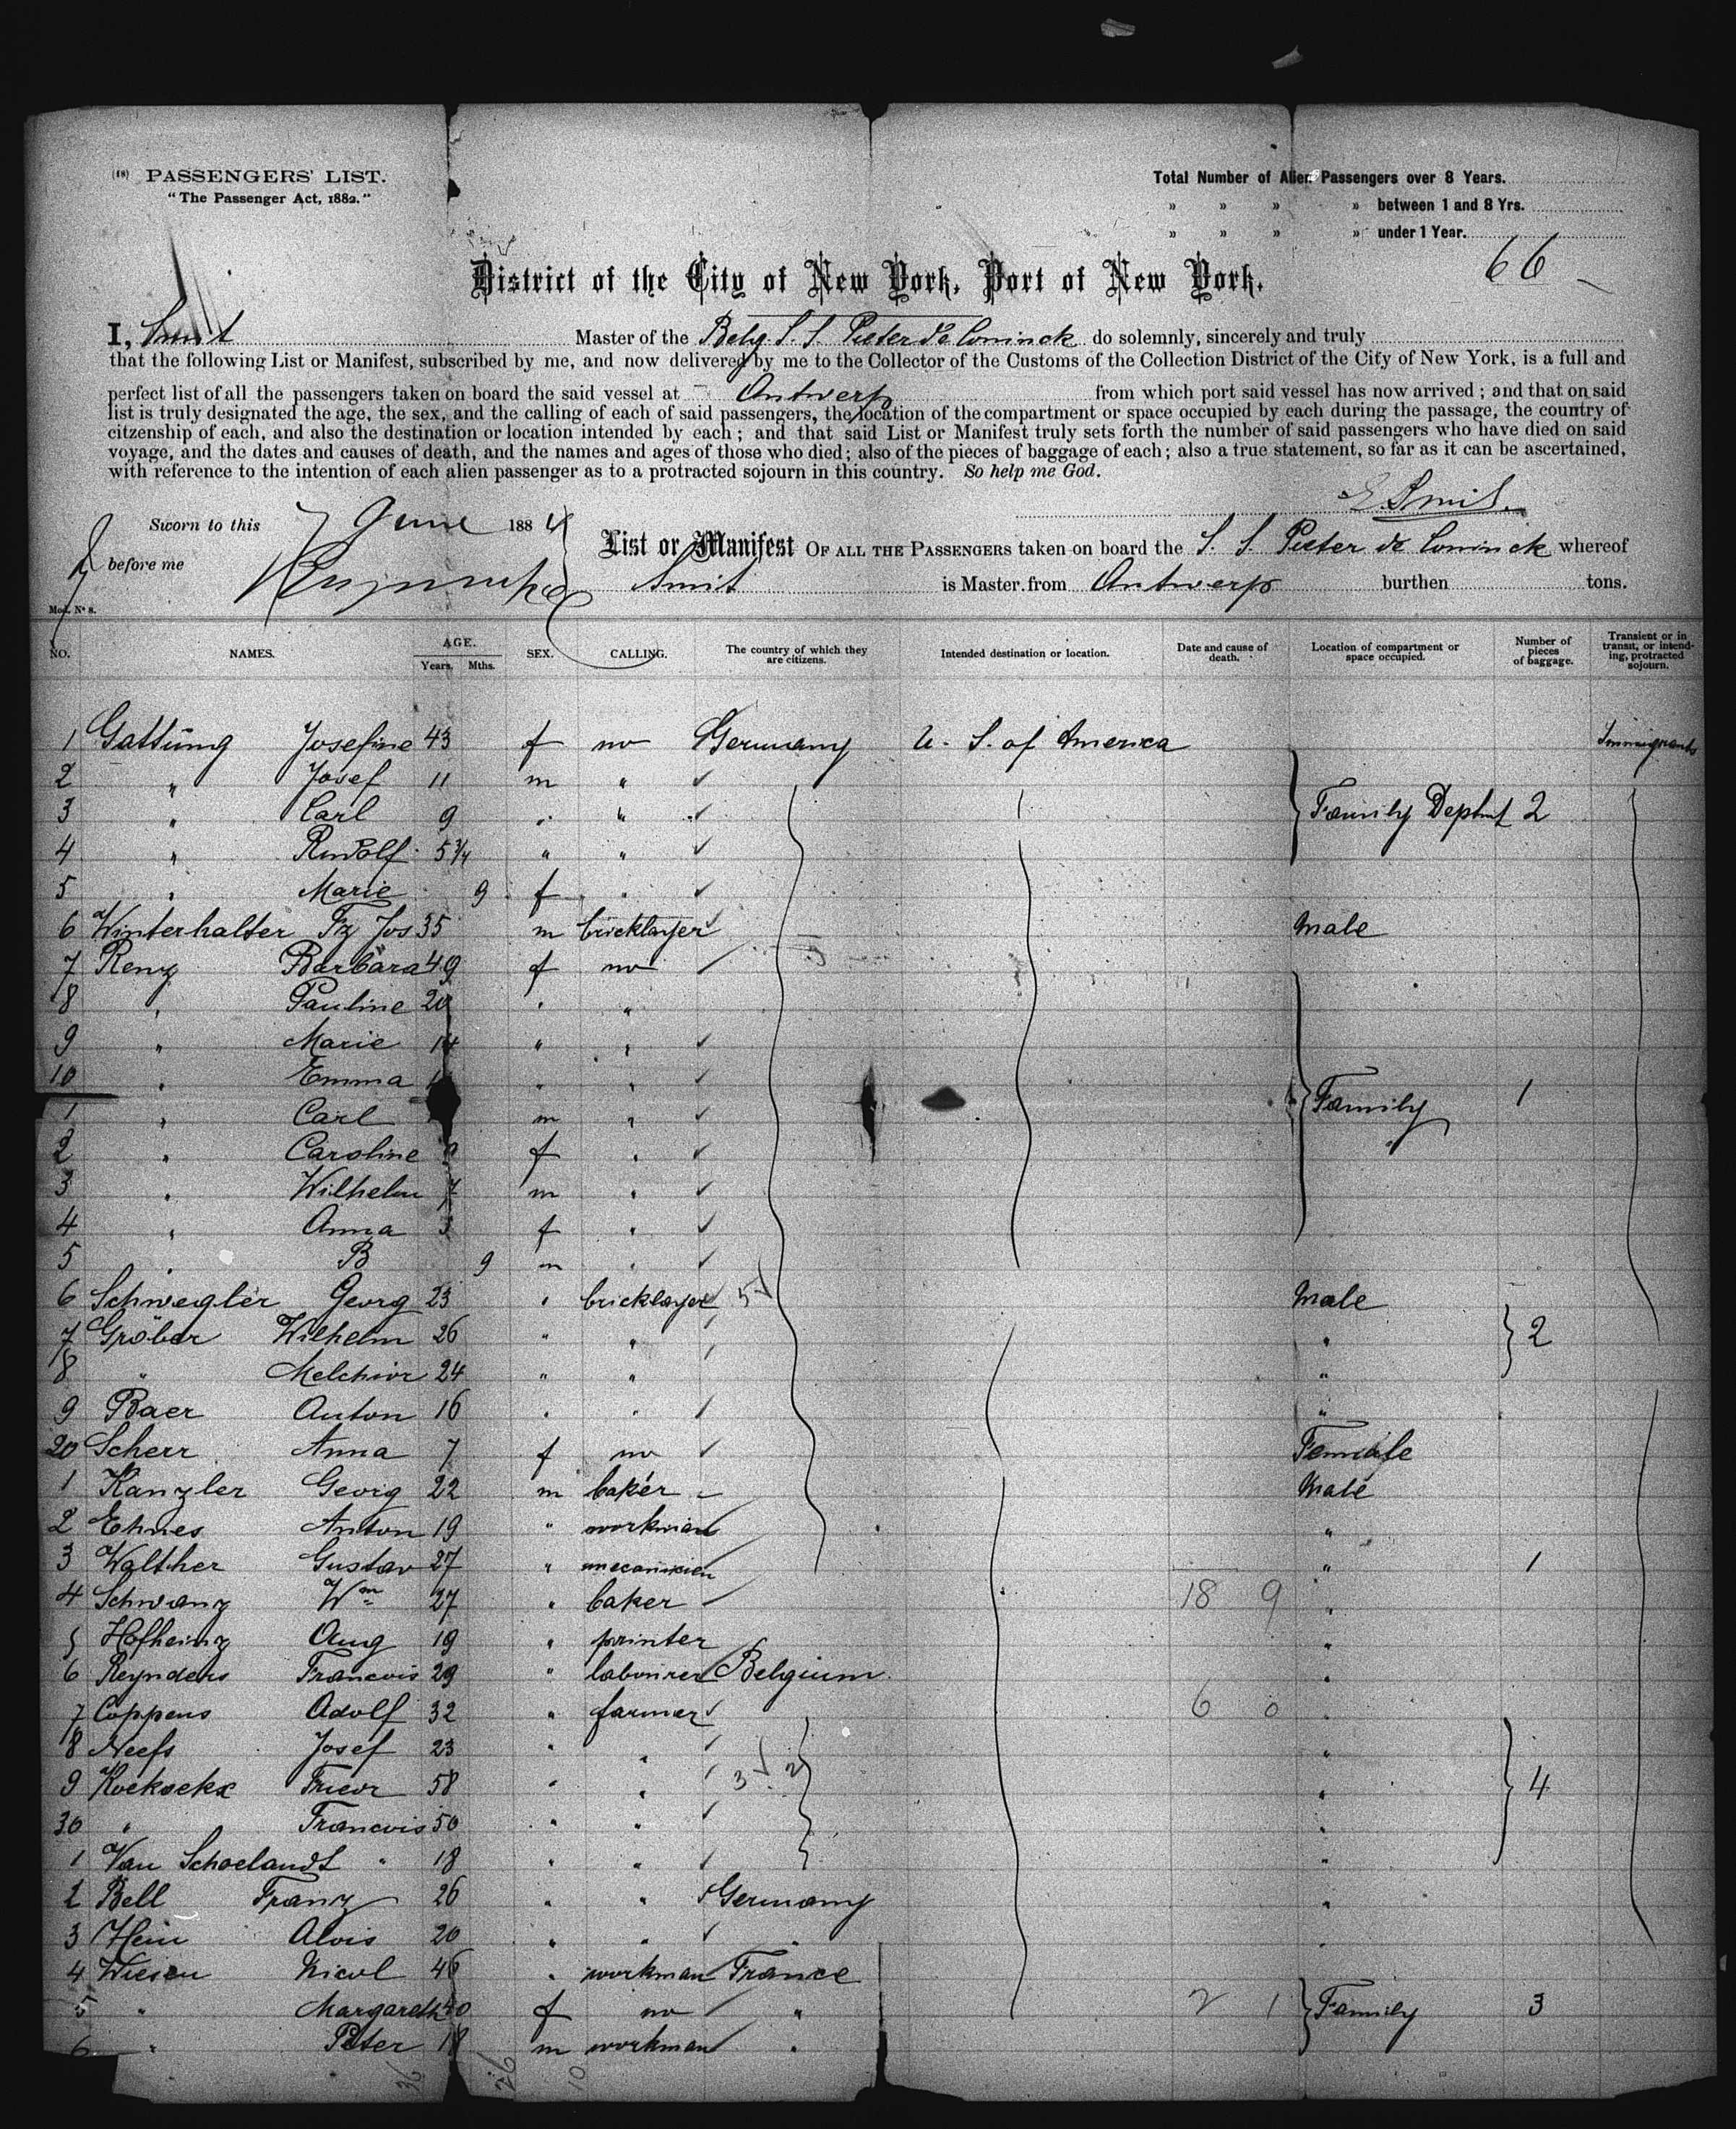 (18) PASSENGERS' LIST.
"The Passenger Act, 1882."
Total Number of Alien Passengers over 8 Years.
" " " " between 1 and 8 Yrs.
" " " " under 1 Year.
66
District of the City of New York, Port of New York.
I, Smit Master of the Belg. S. S. Pieter de Coninck do solemnly, sincerely and truly
that the following List or Manifest, subscribed by me, and now delivered by me to the Collector of the Customs of the Collection District of the City of New York, is a full and
perfect list of all the passengers taken on board the said vessel at Antwerp from which port said vessel has now arrived; and that on said
list is truly designated the age, the sex, and the calling of each of said passengers, the location of the compartment or space occupied by each during the passage, the country of
citzenship of each, and also the destination or location intended by each; and that said List or Manifest truly sets forth the number of said passengers who have died on said
voyage, and the dates and causes of death, and the names and ages of those who died; also of the pieces of baggage of each; also a true statement, so far as it can be ascertained,
with reference to the intention of each alien passenger as to a protracted sojourn in this country. So help me God.
Smit.
Sworn to this 7 June 1884
before me
List or Manifest OF ALL THE PASSENGERS taken on board the S. S. Pieter de Coninck whereof
Smit is Master. from Antwerp burthen tons.
Mod. Nº 8.
NO. NAMES. AGE. Years. Mths. SEX. CALLING. The country of which they are citizens. Intended destination or location. Date and cause of death. Location of compartment or space occupied. Number of pieces of baggage. Transient or in transit, or intending, protracted sojourn.
1 Gattung Josefine 43 f no Germany U. S. of America Immigrants
2 " Josef 11 m "
3 " Carl 9 " " Family Deptmt 2
4 " Rudolf 5 3/4 " "
5 " Marie 9 f "
6 Winterhalter Fz Jos 35 m bricklayer Male
7 Renz Barbara 49 f no
8 " Pauline 20 " "
9 " Marie 14 " "
10 " Emma " "
1 " Carl m " Family 1
2 " Caroline f "
3 " Wilhelm 7 m "
4 " Anna f "
5 " B 9 m "
6 Schwegler Georg 23 " bricklayer 5 Male
7 Gröber Wilhelm 26 " " " 2
8 " Melchior 24 " " "
9 Baer Anton 16 " " "
20 Scherr Anna 7 f no Female
1 Kanzler Georg 22 m baker Male
2 Ehnes Anton 19 " workman "
3 Walther Gustav 27 " mecanicien " 1
4 Schwanz Wm 27 " baker 18 9 "
5 Hofheinz Aug 19 " printer "
6 Reynders Francois 29 " labourer Belgium "
7 Coppens Adolf 32 " farmer 6 0 "
8 Neefs Josef 23 " " "
9 58 " " 3 2 " 4
30 " Francois 50 " " "
1 Van Schoelandt " 18 " " "
2 Bell Franz 26 " " Germany "
3 Hein Alois 20 " " " "
4 Wiesen Nicol 46 " workman France
5 " Margareth 40 f no " 2 1 Family 3
6 " Peter 18 m workman "
36 26 10